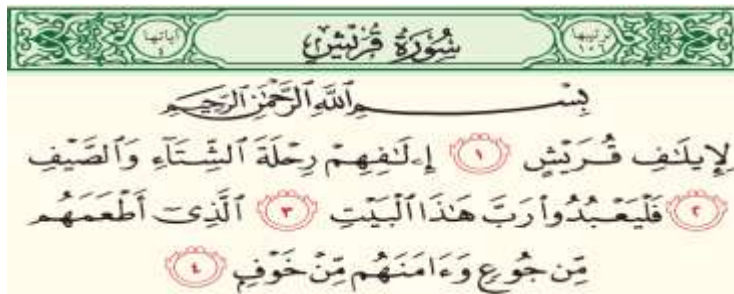 ترتيبها ١٠٦ سُورَةُ قُرَيْشٍ آياتها ٤
بِسْمِ ٱللَّهِ ٱلرَّحْمَٰنِ ٱلرَّحِيمِ
لِإِيلَٰفِ قُرَيْشٍ ١ إِۦلَٰفِهِمْ رِحْلَةَ ٱلشِّتَآءِ وَٱلصَّيْفِ
٢ فَلْيَعْبُدُوا۟ رَبَّ هَٰذَا ٱلْبَيْتِ ٣ ٱلَّذِىٓ أَطْعَمَهُم
مِّن جُوعٍ وَءَامَنَهُم مِّنْ خَوْفٍۭ ٤